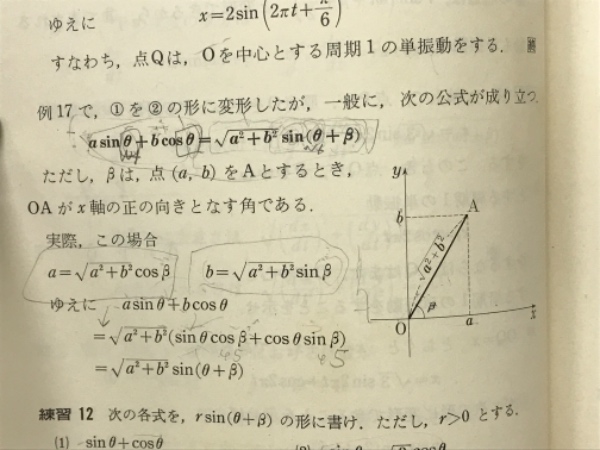 ゆえに x=2sin(2πt+π/6)
すなわち，点Qは，Oを中心とする周期1の単振動をする．
例17で，①を②の形に変形したが，一般に，次の公式が成り立つ．
a sinθ+b cosθ=√a²+b² sin(θ+β)
ただし，βは，点(a, b)をAとするとき，
OAがx軸の正の向きとなす角である．
実際，この場合
a=√a²+b² cosβ b=√a²+b² sinβ
ゆえに a sinθ+b cosθ
=√a²+b²(sinθcosβ+cosθsinβ)
45 45
=√a²+b² sin(θ+β)
y
b
A
√a²+b²
β
O
a
x
練習12 次の各式を，r sin(θ+β)の形に書け．ただし，r>0とする．
(1) sinθ+cosθ